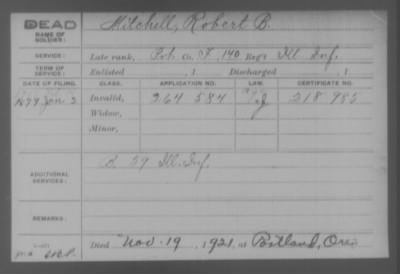 DEAD
NAME OF SOLDIER: Mitchell, Robert B.
SERVICE: Late rank, Pvt. Co. F, 140 Reg't Ill Inf.
TERM OF SERVICE: Enlisted , 1 Discharged , 1
DATE OF FILING. CLASS. APPLICATION NO. LAW. CERTIFICATE NO.
Jan. 2 Invalid, 264 584 218 985
Widow,
Minor,
ADDITIONAL SERVICES: 59 Ill. Inf.
REMARKS:
Died Nov. 19, 1921, at Portland, Ore